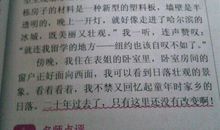 栋房子的材料是一种新型的塑料板，墙壁是半
透明的，晚上一开灯，就好像走进了哈尔滨的
冰城，既美丽又壮观。”我一听，连声赞叹：
“就连我留学的地方——纽约也该自叹不如了。”
傍晚，我住在表姐的卧室里，卧室房间的
窗户正好面向西面，我可以看到日落壮观的景
象，看着看着，我不禁又回忆起童年时家乡的
日落，二十年过去了，只有这里还没有改变啊！
名师点评